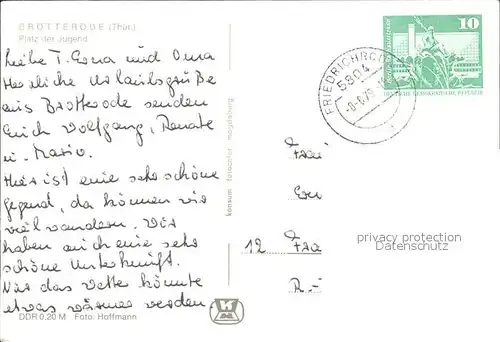 BROTTERODE (Thür.)
Platz der Jugend
Liebe T. Erna und Oma
Herzliche Urlaubsgrüße
aus Brotterode senden
Euch Wolfgang, Renate
u. Mario.
Hier ist eine sehr schöne
Gegend, da können wir
viel wandern. Wir
haben auch eine sehr
schöne Unterkunft.
Nur das Wetter könnte
etwas wärmer werden.
DDR 0,20 M Foto: Hoffmann
konsum fotocolor magdeburg
FRIEDRICHRO
5804
10
DEUTSCHE DEMOKRATISCHE REPUBLIK
Frau
12
privacy protection
Datenschutz